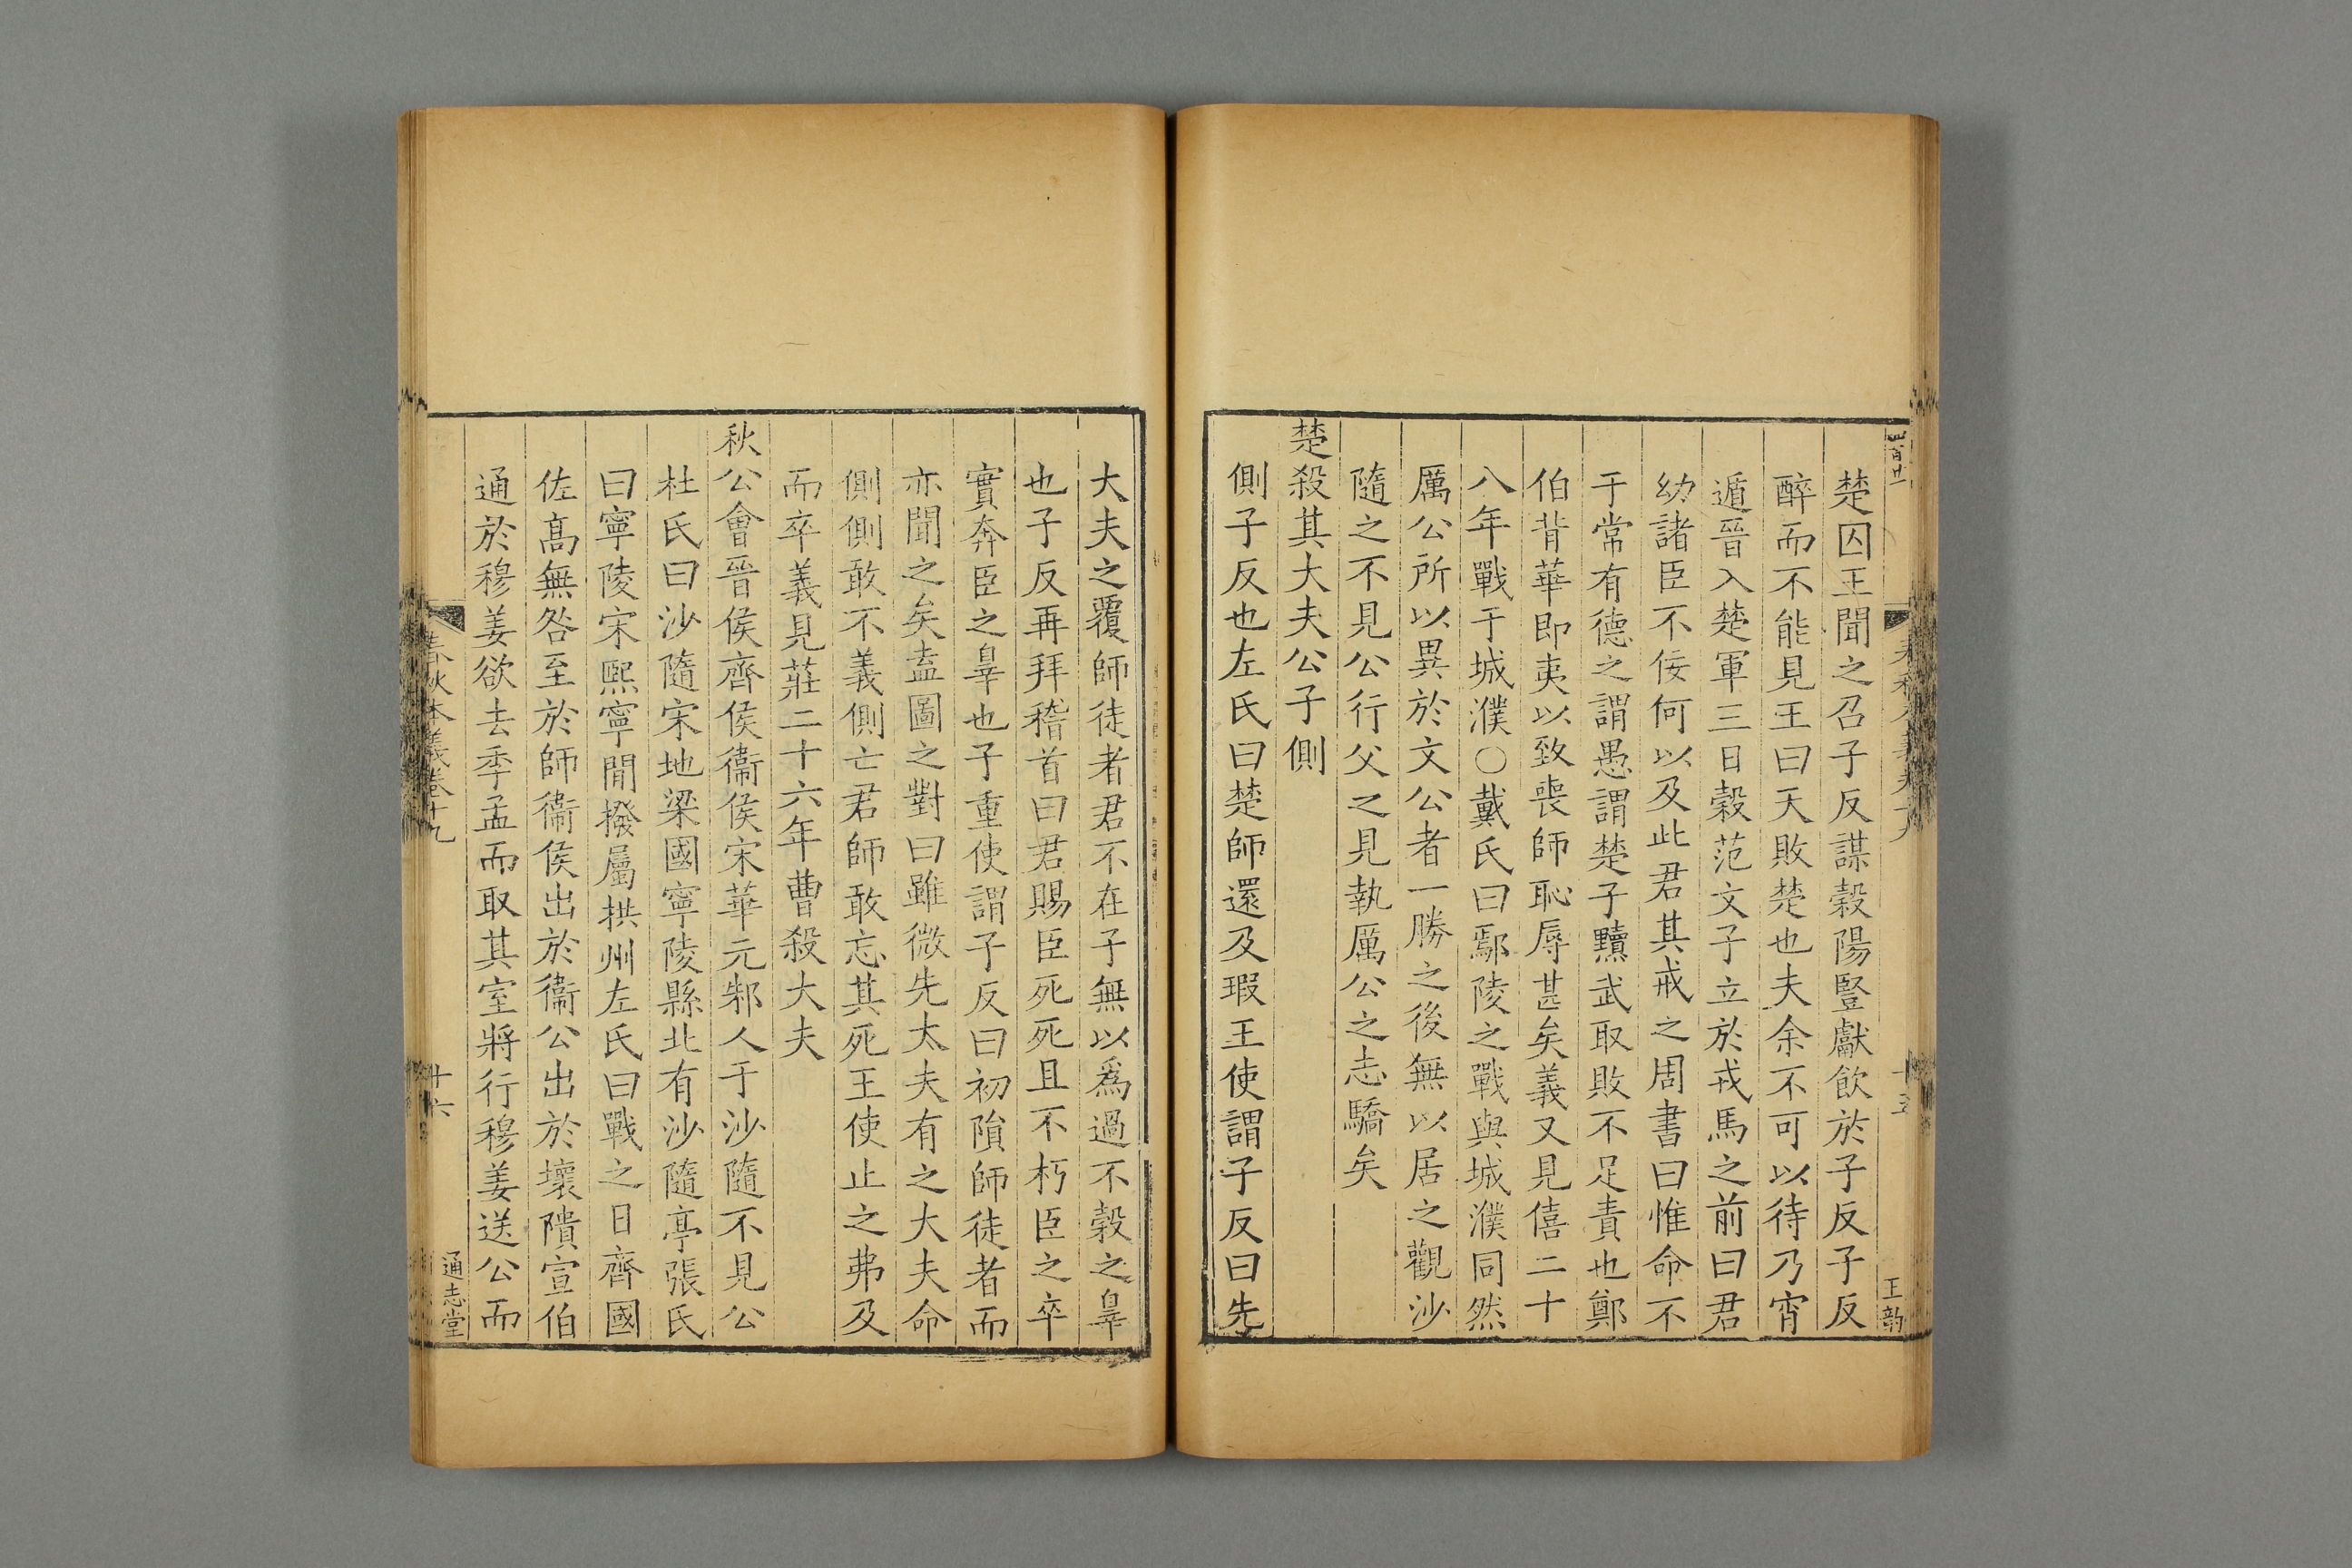 楚囚王聞之召子反謀穀陽豎獻飲於子反子反
醉而不能見王曰天敗楚也夫余不可以待乃宵
遁晉入楚軍三日穀范文子立於戎馬之前曰君
幼諸臣不佞何以及此君其戒之周書曰惟命不
于常有德之謂愚謂楚子黷武取敗不足責也鄭
伯背華即夷以致喪師恥辱甚矣義又見僖二十
八年戰于城濮〇戴氏曰鄢陵之戰與城濮同然
厲公所以異於文公者一勝之後無以居之觀沙
隨之不見公行父之見執厲公之志驕矣
楚殺其大夫公子側
側子反也左氏曰楚師還及瑕王使謂子反曰先
大夫之覆師徒者君不在子無以爲過不穀之辠
也子反再拜稽首曰君賜臣死死且不朽臣之卒
實奔臣之辠也子重使謂子反曰初隕師徒者而
亦聞之矣盍圖之對曰雖微先太夫有之大夫命
側側敢不義側亡君師敢忘其死王使止之弗及
而卒義見莊二十六年曹殺大夫
秋公會晉侯齊侯衞侯宋華元邾人于沙隨不見公
杜氏曰沙隨宋地梁國寧陵縣北有沙隨亭張氏
曰寧陵宋熙寧閒撥屬拱州左氏曰戰之日齊國
佐高無咎至於師衞侯出於衞公出於壞隤宣伯
通於穆姜欲去季孟而取其室將行穆姜送公而
春秋本義卷十九
十六
通志堂